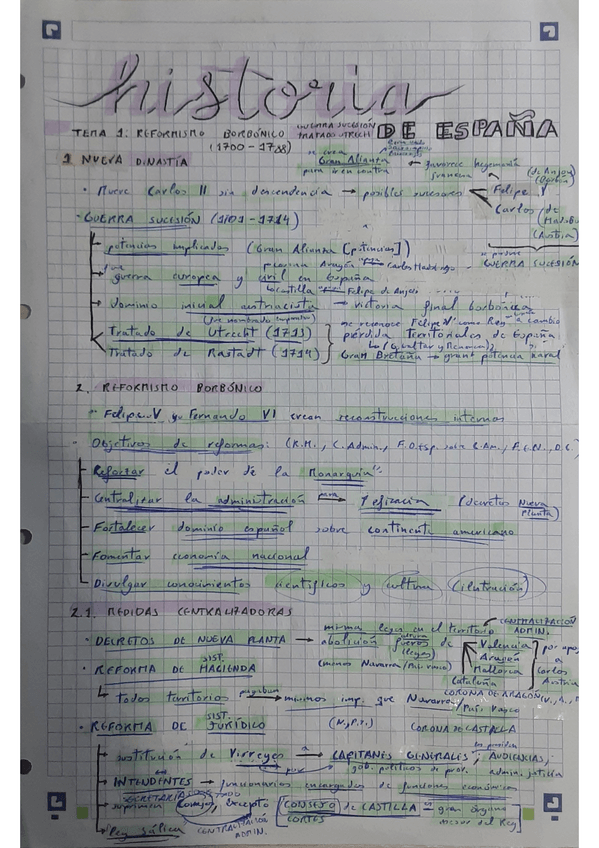 historia
DE ESPAÑA
TEMA 1: REFORMISMO BORBÓNICO
(1700 - 1788)
GUERRA SUCESIÓN
TRATADO UTRECH
1 NUEVA DINASTÍA
se crea
Gran Alianza ← favorece hegemonía
para ir en contra francesa
· Muere Carlos II sin descendencia → posibles sucesores
Felipe V (de Anjou)
(Borbón)
Carlos (de
(Austria)
GUERRA SUCESIÓN
- GUERRA SUCESIÓN (1701 - 1714)
potencias implicadas (Gran Alianza [potencias])
guerra europea y civil en España
Corona Aragón Carlos Habsburgo
Castilla Felipe de Anjou
dominio inicial austracista → victoria final borbónica
Tratado de Utrecht (1713)
Tratado de Rastadt (1714)
se reconoce Felipe V como Rey a cambio
pérdida territoriales de España
(Gibraltar y Menorca)
Gran Bretaña → grant potencia naval
2. REFORMISMO BORBÓNICO
Felipe V y Fernando VI crean reconstrucciones internas
- Objetivos de reformas: (R.M., C.Admin., F.D.Esp. sobre C.Am., F.E.N., D.C.)
Reforzar el poder de la Monarquía
Centralizar la administración para (decretos Nueva
Planta)
Fortalecer dominio español sobre continente americano
Fomentar economía nacional
Divulgar conocimientos científicos y cultura (ilutración)
2.1. MEDIDAS CENTRALIZADORAS
misma leyes en el territorio
CENTRALIZACIÓN
ADMIN.
· DECRETOS DE NUEVA PLANTA → abolición fueros de
(leyes)
(menos Navarra/País vasco)
Valencia
Aragón
Mallorca
Cataluña
por apoyo
a
Carlos
Austria
CORONA DE ARAGÓN
· REFORMA DE SIST. HACIENDA
todos territorios pagaban mismos imp. que Navarra/
País Vasco
· REFORMA DE SIST. JURÍDICO
(N.P.)
CORONA DE CASTILLA
sustitución de Virreyes a CAPITANES GENERALES, AUDIENCIAS,
gob. políticos de prov. admin. justicia
INTENDENTES → funcionarios encargados de funciones económicas
SECRETARÍA
suprimen Consejos, excepto [CONSEJO de CASTILLA = gran órgano
CORTES asesor del Rey]
CENTRALIZACIÓN
ADMIN.
Ley Sálica